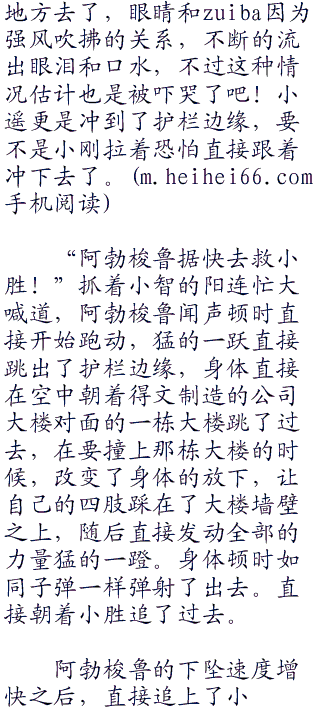 地方去了，眼睛和zuiba因为
强风吹拂的关系，不断的流
出眼泪和口水，不过这种情
况估计也是被吓哭了吧！小
遥更是冲到了护栏边缘，要
不是小刚拉着恐怕直接跟着
冲下去了。(m.heihei66.com
手机阅读)
“阿勃梭鲁据快去救小
胜！”抓着小智的阳连忙大
喊道，阿勃梭鲁闻声顿时直
接开始跑动，猛的一跃直接
跳出了护栏边缘，身体直接
在空中朝着得文制造的公司
大楼对面的一栋大楼跳了过
去，在要撞上那栋大楼的时
候，改变了身体的放下，让
自己的四肢踩在了大楼墙壁
之上，随后直接发动全部的
力量猛的一蹬。身体顿时如
同子弹一样弹射了出去。直
接朝着小胜追了过去。
阿勃梭鲁的下坠速度增
快之后，直接追上了小